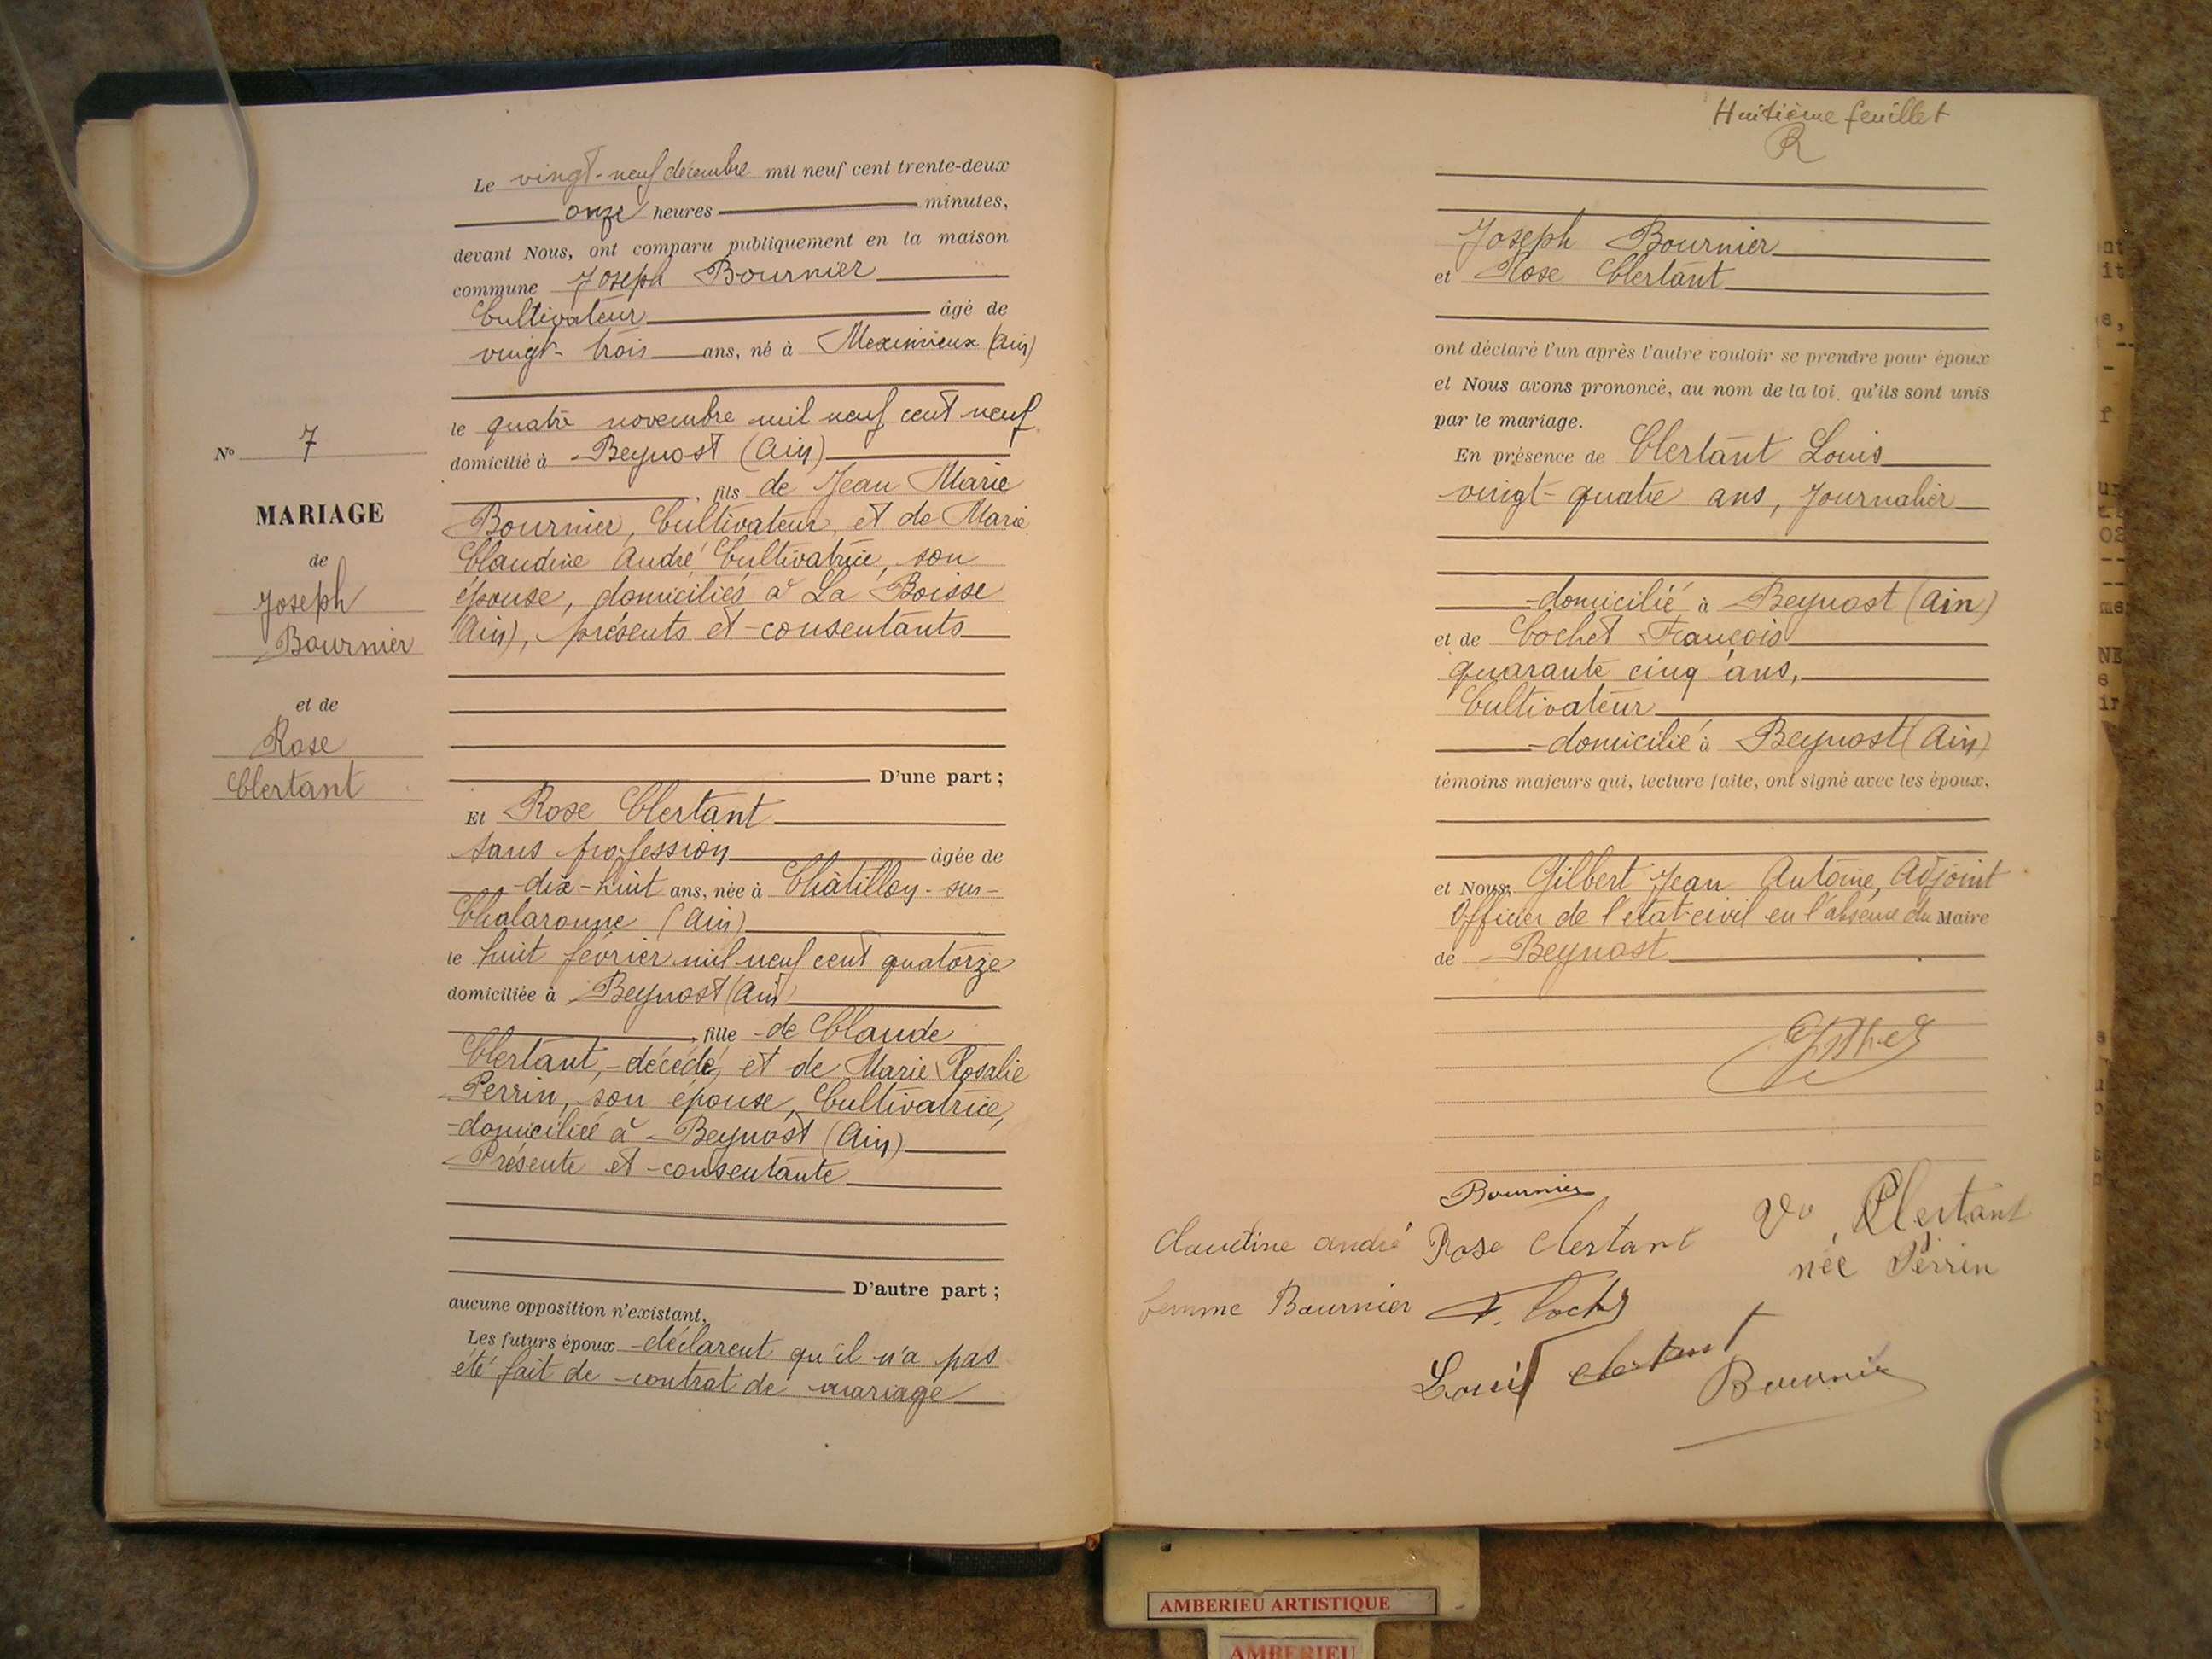 Le vingt-neuf décembre mil neuf cent trente-deux
onze heures minutes,
devant Nous, ont comparu publiquement en la maison
commune Joseph Bournier
Cultivateur âgé de
vingt-trois ans, né à Meximieux (Ain)
le quatre novembre mil neuf cent neuf
domicilié à Beynost (Ain)
, fils de Jean Marie
Bournier, Cultivateur, et de Marie
Claudine André Cultivatrice, son
épouse, domiciliés à La Boisse
(Ain), présents et consentants
D'une part ;
Et Rose Clertant
sans profession âgée de
dix-huit ans, née à Châtillon-sur-
Chalaronne (Ain)
le huit février mil neuf cent quatorze
domiciliée à Beynost (Ain)
, fille de Claude
Clertant, décédé, et de Marie Rosalie
Perrin, son épouse, Cultivatrice,
domiciliée à Beynost (Ain)
Présente et consentante
D'autre part ;
aucune opposition n'existant,
Les futurs époux déclarent qu'il n'a pas
été fait de contrat de mariage
N° 7
MARIAGE
de
Joseph
Bournier
et de
Rose
Clertant
Huitième feuillet
R
Joseph Bournier
et Rose Clertant
ont déclaré l'un après l'autre vouloir se prendre pour époux
et Nous avons prononcé, au nom de la loi, qu'ils sont unis
par le mariage.
En présence de Clertant Louis
vingt-quatre ans, Journalier
domicilié à Beynost (Ain)
et de Cochet François
quarante cinq ans,
Cultivateur
domicilié à Beynost (Ain)
témoins majeurs qui, lecture faite, ont signé avec les époux,
et Nous, Gilbert Jean Antoine, Adjoint
Officier de l'état-civil en l'absence du Maire
de Beynost
Bournier
Claudine andré Rose Clertant Ve Clertant
née Perrin
femme Bournier
Louis Clertant
Bournier
AMBERIEU ARTISTIQUE
AMBERIEU